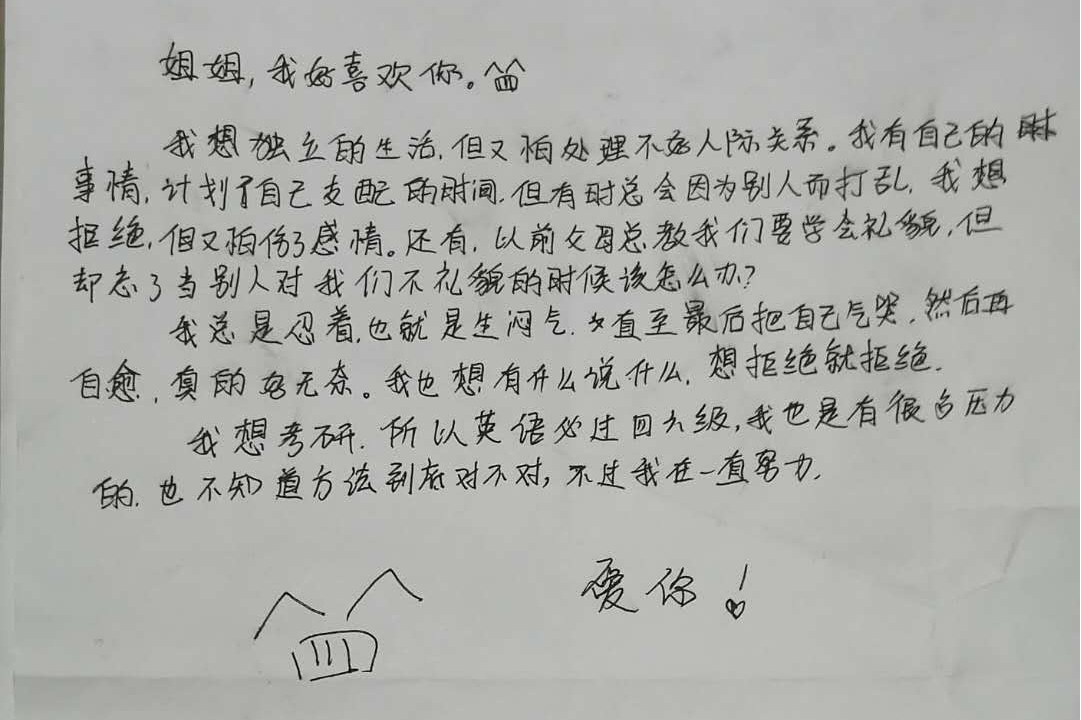 姐姐，我好喜欢你。
我想独立的生活，但又怕处理不好人际关系。我有自己的
事情，计划了自己支配的时间，但有时总会因为别人而打乱，我想
拒绝，但又怕伤了感情。还有，以前父母总教我们要学会礼貌，但
却忘了当别人对我们不礼貌的时候该怎么办？
我总是忍着，也就是生闷气，直至最后把自己气哭，然后再
自愈，真的好无奈。我也想有什么说什么，想拒绝就拒绝。
我想考研，所以英语必过四六级，我也是有很多压力
的，也不知道方法到底对不对，不过我在一直努力。
爱你！